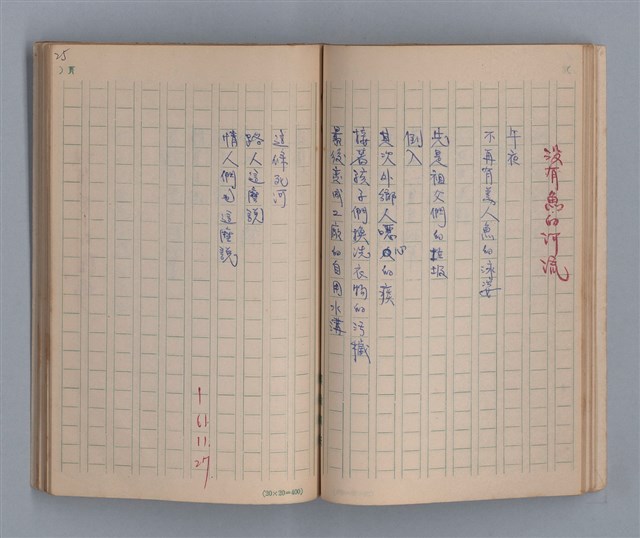 沒有魚的河流
午夜
不再有美人魚的泳姿
先是祖父們的垃圾
倒入
其次外鄉人噁心的痰
接著孩子們換洗衣物的污穢
最後變成工廠的自用水溝
這條死河
路人這麼說
情人們也這麼說
61.11.27.
25
(20×20=400)